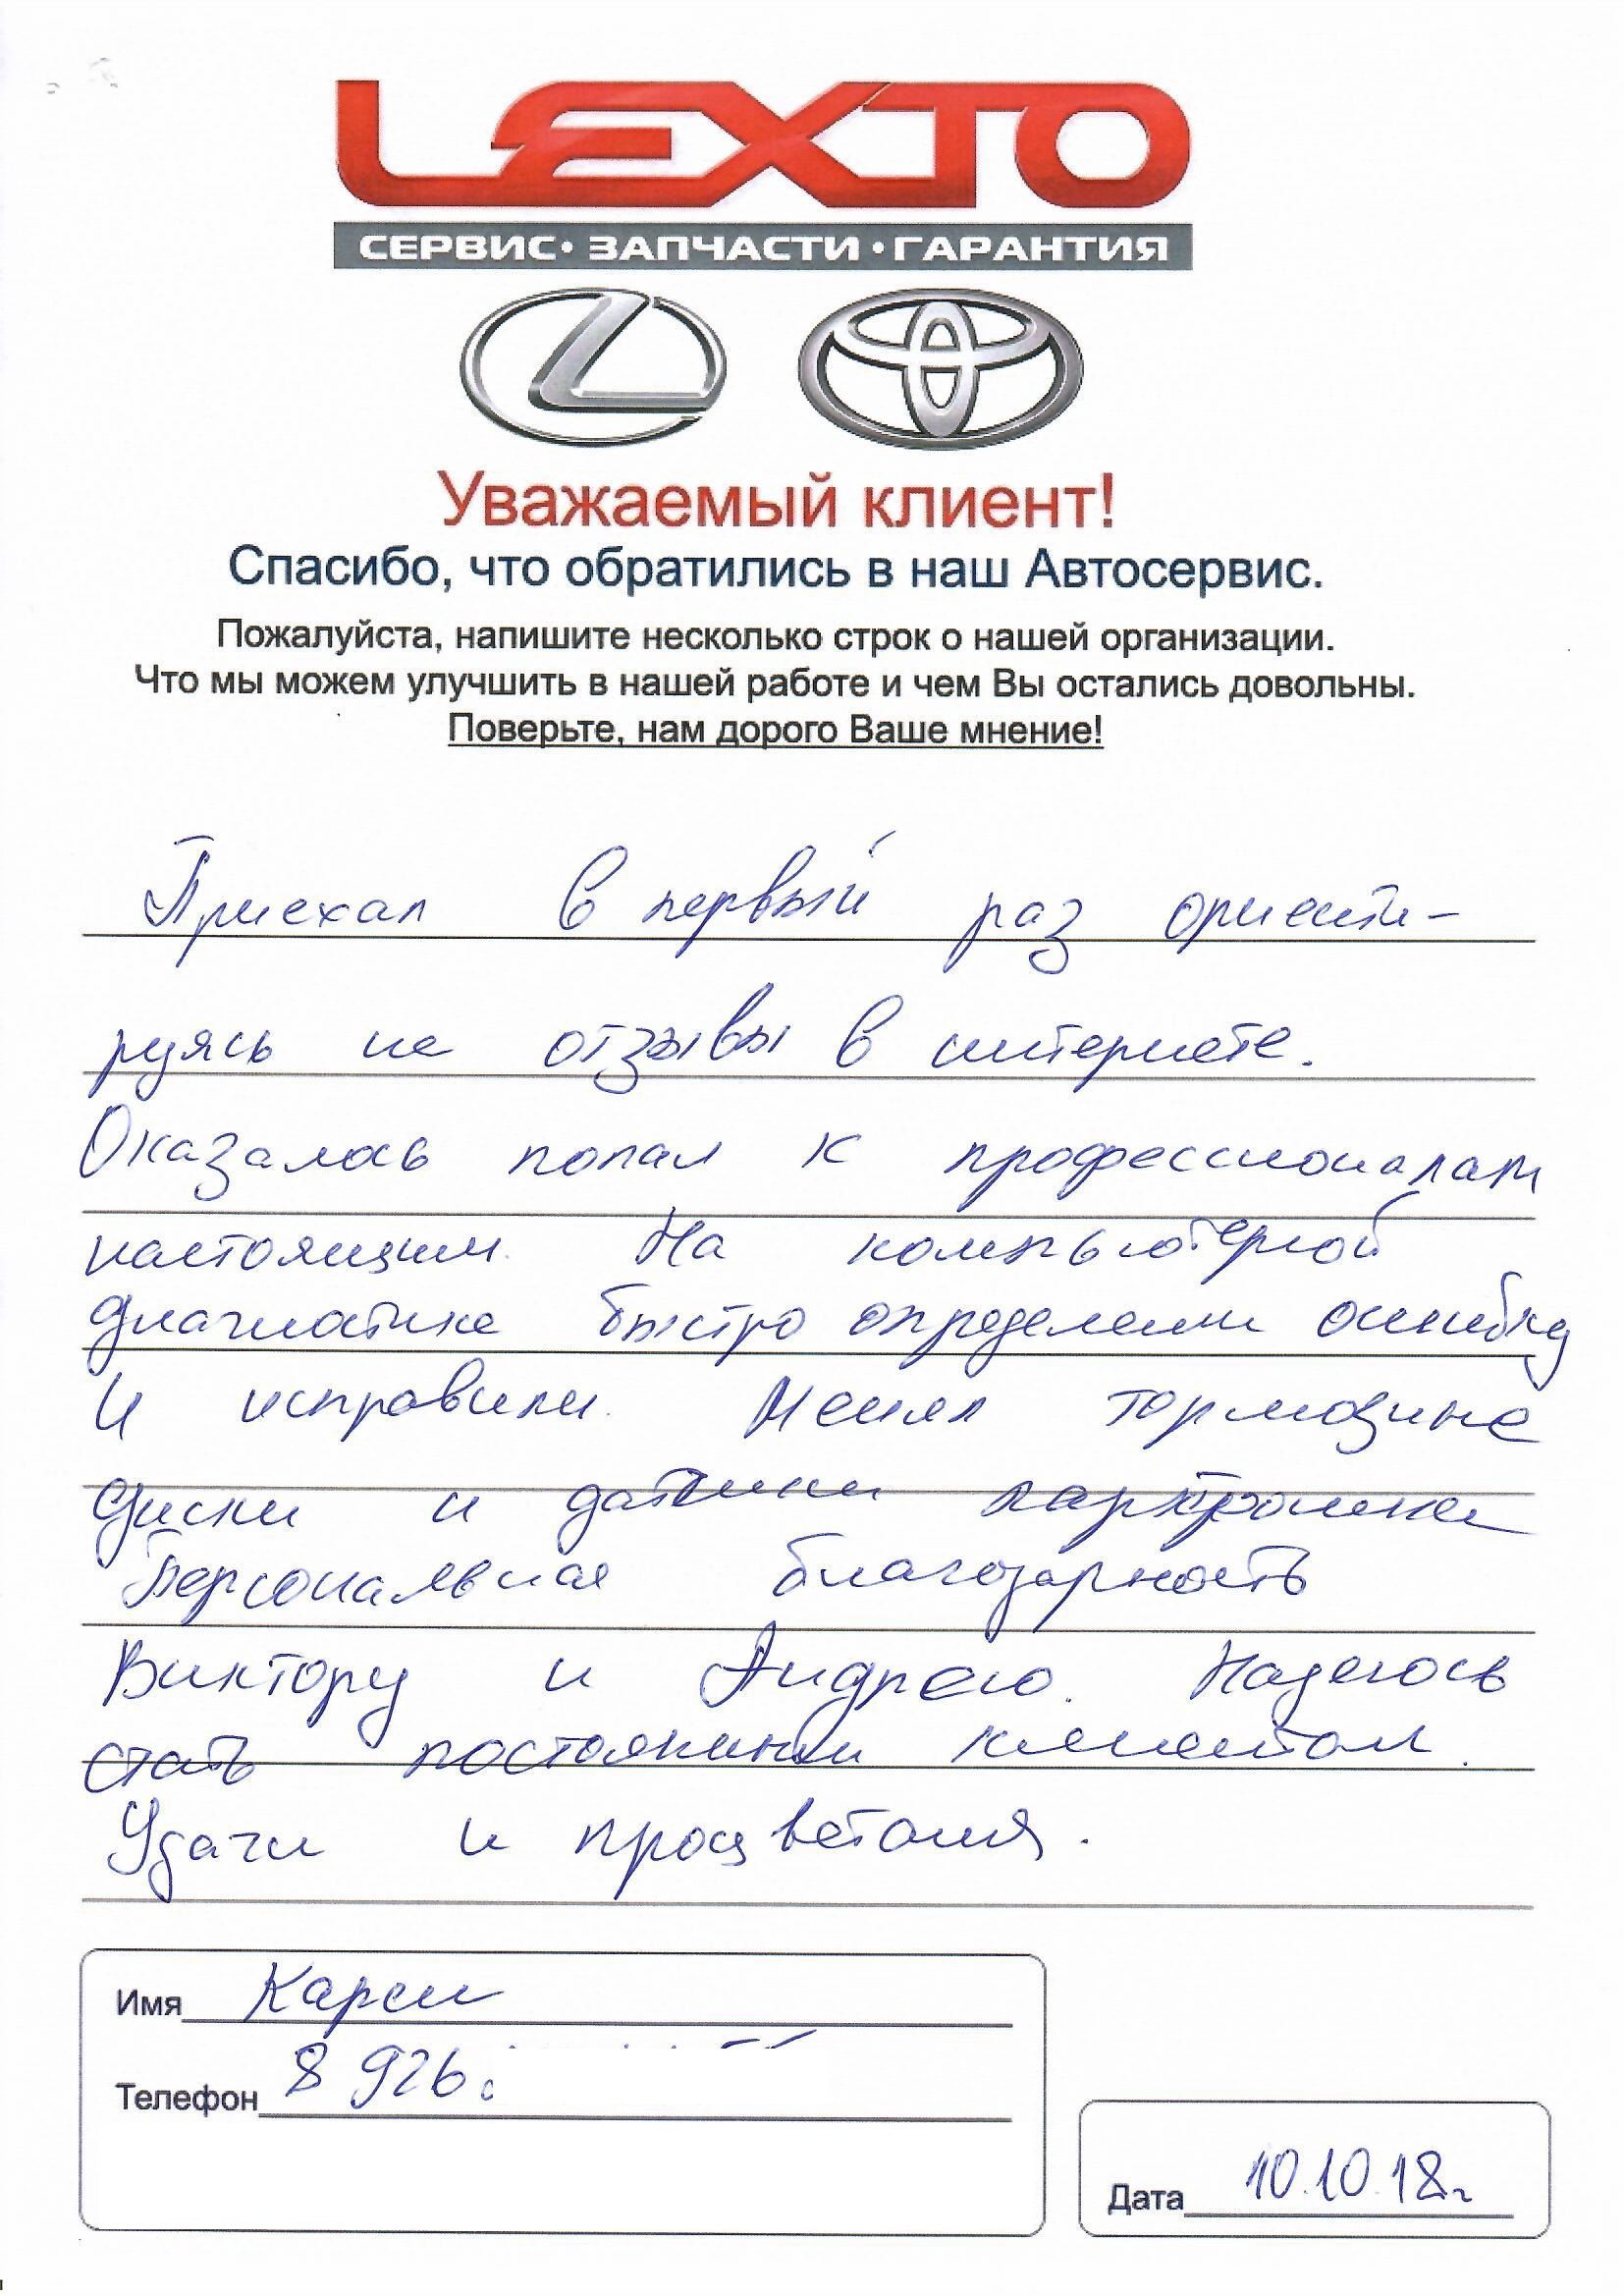 LEXTO
СЕРВИС • ЗАПЧАСТИ • ГАРАНТИЯ
Уважаемый клиент!
Спасибо, что обратились в наш Автосервис.
Пожалуйста, напишите несколько строк о нашей организации.
Что мы можем улучшить в нашей работе и чем Вы остались довольны.
Поверьте, нам дорого Ваше мнение!
Приехал в первый раз ориенти-
руясь на отзывы в интернете.
Оказалось попал к профессионалам
настоящим. На компьютерной
диагностике быстро определили ошибку
и исправили. Менял тормозные
диски и датчики парктроника
Персональная благодарность
Виктору и Андрею. Надеюсь
стать постоянным клиентом.
Удачи и процветания.
Имя
Телефон 8 926
Дата 10.10.18г